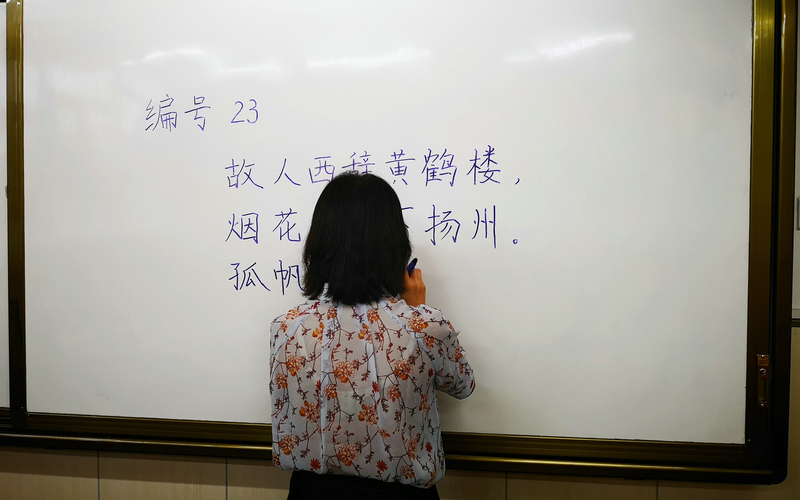 编号 23
故人西辞黄鹤楼，
烟花下扬州。
孤帆